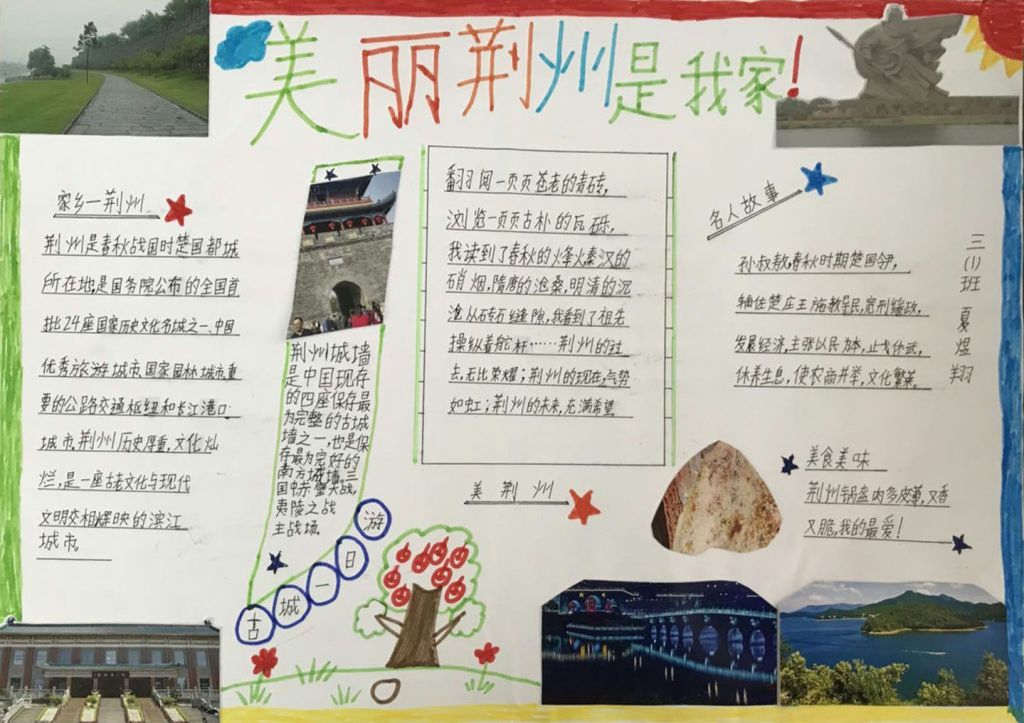 美丽荆州是我家！
家乡—荆州
荆州是春秋战国时楚国都城
所在地是国务院公布的全国首
批24座国家历史文化名城之一、中国
优秀旅游城市国家园林城市重
要的公路交通枢纽和长江港口
城市。荆州历史厚重，文化灿
烂，是一座古老文化与现代
文明交相辉映的滨江
城市。
荆州城墙
是中国现存
的四座保存最
为完整的古城
墙之一，也是保
存最为完好的
南方城墙，三
国中赤壁大战，
夷陵之战
主战场。
古城一日游
翻阅一页页苍老的青砖，
浏览一页页古朴的瓦砾，
我读到了春秋的烽火秦汉的
硝烟，隋唐的沧桑，明清的沉
沧从砖石缝隙，我看到了祖先
操纵着舵杆……荆州的过
去，无比荣耀；荆州的现在，气势
如虹；荆州的未来，充满希望
美荆州
名人故事
孙叔敖，春秋时期楚国令尹，
辅佐楚庄王施教导民，宽刑缓政，
发展经济，主张以民为本，止戈休武，
休养生息，使农商并举，文化繁荣。
三(1)班夏煜翔
美食美味
荆州锅盔肉多皮薄，又香
又脆，我的最爱！